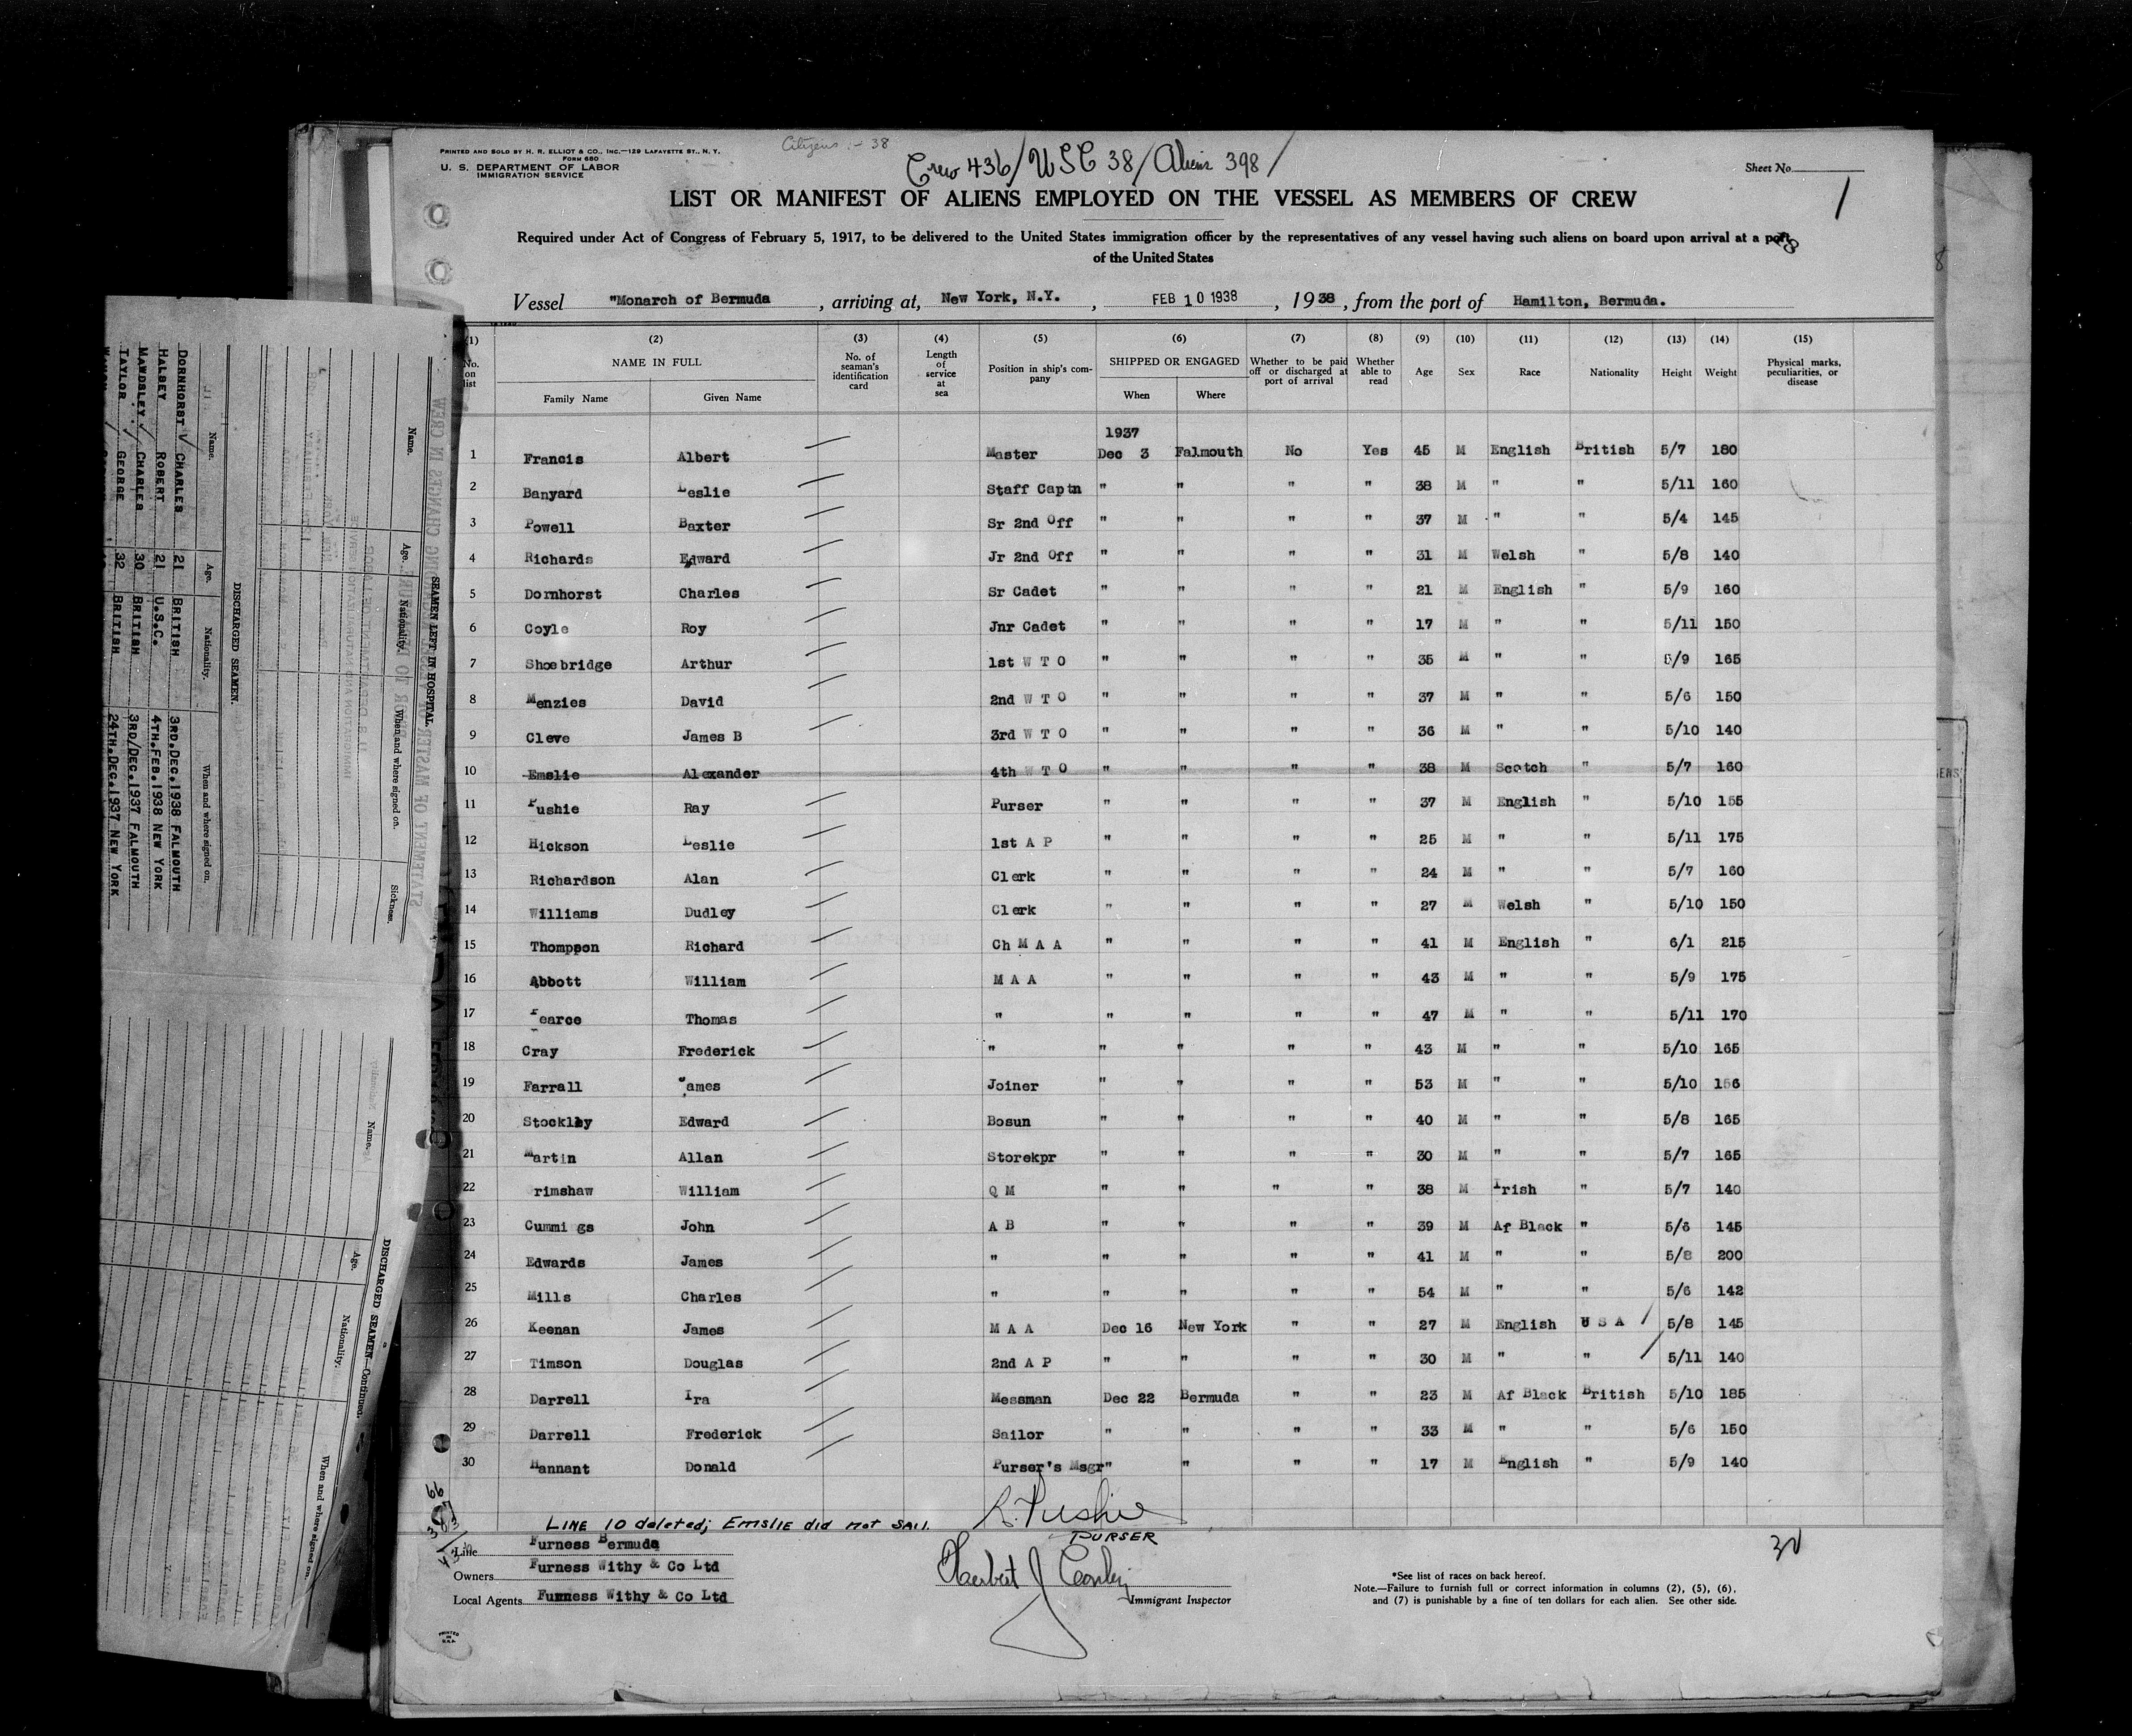 PRINTED AND SOLD BY H. R. ELLIOT & CO., INC.—129 LAFAYETTE ST., N. Y.
FORM 680
U. S. DEPARTMENT OF LABOR
IMMIGRATION SERVICE
Citizens :- 38
Crew 436/ USC 38/ Aliens 398/
Sheet No.
1
LIST OR MANIFEST OF ALIENS EMPLOYED ON THE VESSEL AS MEMBERS OF CREW
Required under Act of Congress of February 5, 1917, to be delivered to the United States immigration officer by the representatives of any vessel having such aliens on board upon arrival at a port
of the United States
Vessel "Monarch of Bermuda , arriving at, New York, N.Y. , FEB 10 1938 , 1938, from the port of Hamilton, Bermuda.
(1) (2) (3) (4) (5) (6) (7) (8) (9) (10) (11) (12) (13) (14) (15)
No. on list NAME IN FULL Family Name Given Name No. of seaman's identification card Length of service at sea Position in ship's company SHIPPED OR ENGAGED When Where Whether to be paid off or discharged at port of arrival Whether able to read Age Sex Race Nationality Height Weight Physical marks, peculiarities, or disease
1937
1 Francis Albert Master Dec 3 Falmouth No Yes 45 M English British 5/7 180
2 Banyard Leslie Staff Captn " " " " 38 M " " 5/11 160
3 Powell Baxter Sr 2nd Off " " " " 37 M " " 5/4 145
4 Richards Edward Jr 2nd Off " " " " 31 M Welsh " 5/8 140
5 Dornhorst Charles Sr Cadet " " " " 21 M English " 5/9 160
6 Coyle Roy Jnr Cadet " " " " 17 M " " 5/11 150
7 Shoebridge Arthur 1st W T O " " " " 35 M " " 5/9 165
8 Menzies David 2nd W T O " " " " 37 M " " 5/6 150
9 Cleve James B 3rd W T O " " " " 36 M " " 5/10 140
10 Emslie Alexander 4th W T O " " " " 38 M Scotch " 5/7 160
11 Pushie Ray Purser " " " " 37 M English " 5/10 155
12 Hickson Leslie 1st A P " " " " 25 M " " 5/11 175
13 Richardson Alan Clerk " " " " 24 M " " 5/7 160
14 Williams Dudley Clerk " " " " 27 M Welsh " 5/10 150
15 Thomppon Richard Ch M A A " " " " 41 M English " 6/1 215
16 Abbott William M A A " " " " 43 M " " 5/9 175
17 Pearce Thomas " " " " " 47 M " " 5/11 170
18 Cray Frederick " " " " " 43 M " " 5/10 165
19 Farrall James Joiner " " " " 53 M " " 5/10 156
20 Stockley Edward Bosun " " " " 40 M " " 5/8 165
21 Martin Allan Storekpr " " " " 30 M " " 5/7 165
22 rimshaw William Q M " " " " 38 M Irish " 5/7 140
23 Cummi gs John A B " " " " 39 M Af Black " 5/6 145
24 Edwards James " " " " " 41 M " " 5/8 200
25 Mills Charles " " " " " 54 M " " 5/6 142
26 Keenan James M A A Dec 16 New York " " 27 M English U S A 5/8 145
27 Timson Douglas 2nd A P " " " " 30 M " " 5/11 140
28 Darrell Ira Messman Dec 22 Bermuda " " 23 M Af Black British 5/10 185
29 Darrell Frederick Sailor " " " " 33 M " " 5/6 150
30 Hannant Donald Purser's Msgr " " " " 17 M English " 5/9 140
LINE 10 deleted; EMSLIE did not SAIL.
R. Pushie
PURSER
Line Furness Bermuda
Owners Furness Withy & Co Ltd
Local Agents Furness Withy & Co Ltd
Immigrant Inspector
30
*See list of races on back hereof.
Note.—Failure to furnish full or correct information in columns (2), (5), (6),
and (7) is punishable by a fine of ten dollars for each alien. See other side.
PRINTED IN U.S.A.
STATEMENT OF MASTER REGARDING CHANGES IN CREW
SEAMEN LEFT IN HOSPITAL.
Name. Age. Nationality. When and where signed on. Sickness.
DISCHARGED SEAMEN.
Name. Age. Nationality. When and where signed on.
DORNHORST CHARLES 21 BRITISH 3RD.DEC.1938 FALMOUTH
HALSEY ROBERT 21 U.S.C. 4TH.FEB.1938 NEW YORK
MAWDSLEY CHARLES 30 BRITISH 3RD/DEC.1937 FALMOUTH
TAYLOR GEORGE 32 BRITISH 24TH.DEC.1937 NEW YORK
DISCHARGED SEAMEN—Continued.
Name. Age. Nationality. When and where signed on.